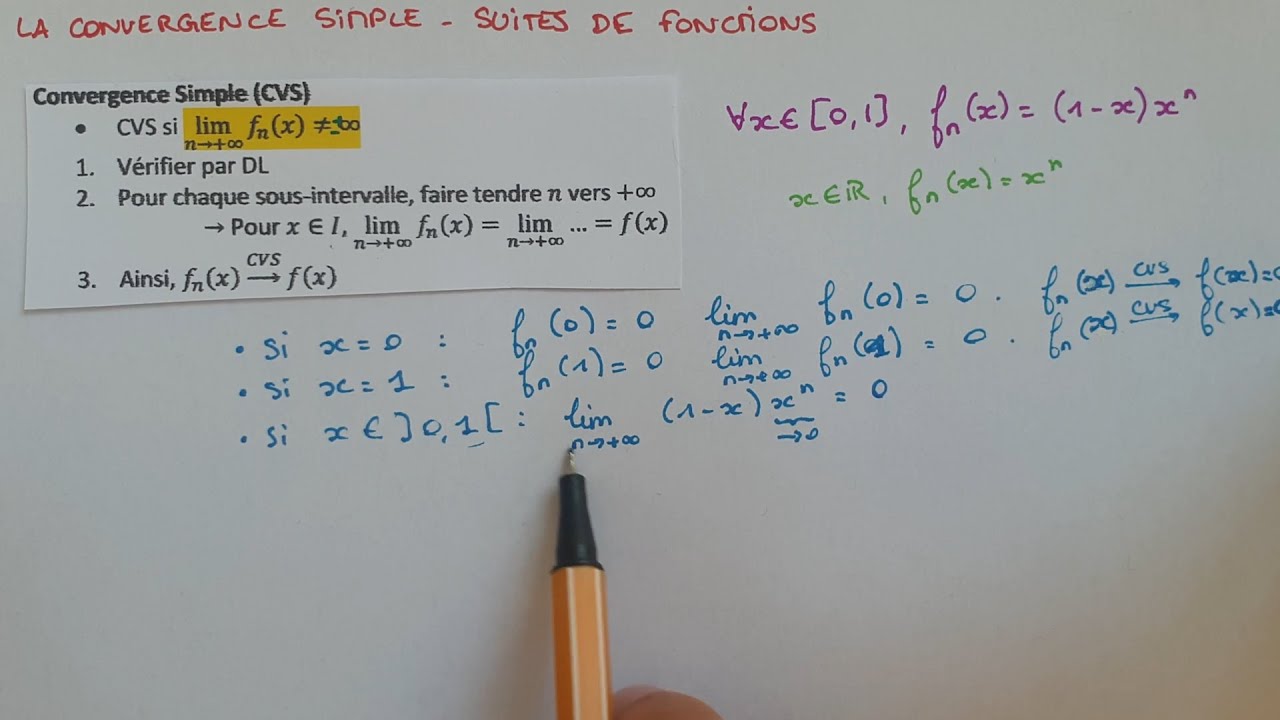 LA CONVERGENCE SIMPLE - SUITES DE FONCTIONS
Convergence Simple (CVS)
• CVS si lim n→+∞ fn(x) ≠ ±∞
1. Vérifier par DL
2. Pour chaque sous-intervalle, faire tendre n vers +∞
→ Pour x ∈ I, lim n→+∞ fn(x) = lim n→+∞ ... = f(x)
3. Ainsi, fn(x) CVS→ f(x)
∀x∈[0,1], fn(x) = (1-x)xⁿ
x∈ℝ, fn(x) = xⁿ
• si x = 0 : fn(0) = 0 lim n→+∞ fn(0) = 0. fn(x) CVS→ f(x)=0
• si x = 1 : fn(1) = 0 lim n→+∞ fn(1) = 0. fn(x) CVS→ f(x)=0
• si x ∈ ]0,1[ : lim n→+∞ (1-x)xⁿ = 0
→0